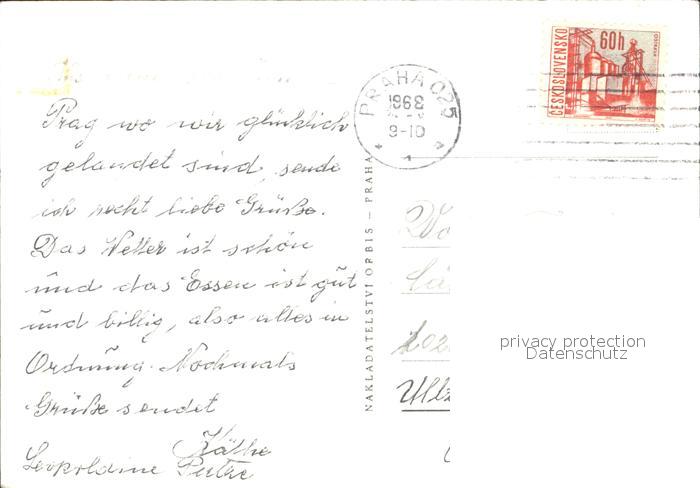 ČESKOSLOVENSKO
60h
OSTRAVA
PRAHA 025
1968
9-10
1
Prag wo wir glücklich
gelandet sind, sende
ich recht liebe Grüße.
Das Wetter ist schön
und das Essen ist gut
und billig, also alles in
Ordnung. Nochmals
Grüße sendet
Käthe
Leopoldine
NAKLADATELSTVÍ ORBIS — PRAHA
privacy protection
Datenschutz